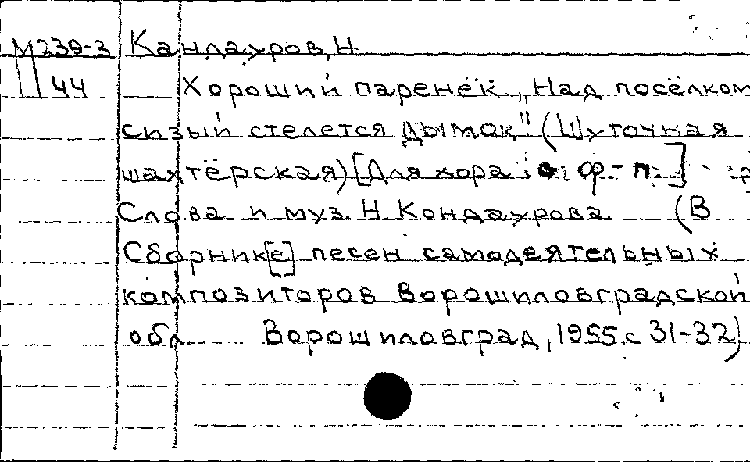 М239-3 Кандауров, Н.
44 Хороший паренёк. „Над посёлком
сизый стелется дымок" (Шуточная
шахтёрская) [Для хора с ф-п.]
Слова и муз. Н. Кондаурова (В
Сборник[е] песен самодеятельных
композиторов Ворошиловградской
обл. Ворошиловград, 1955. с 31-32)